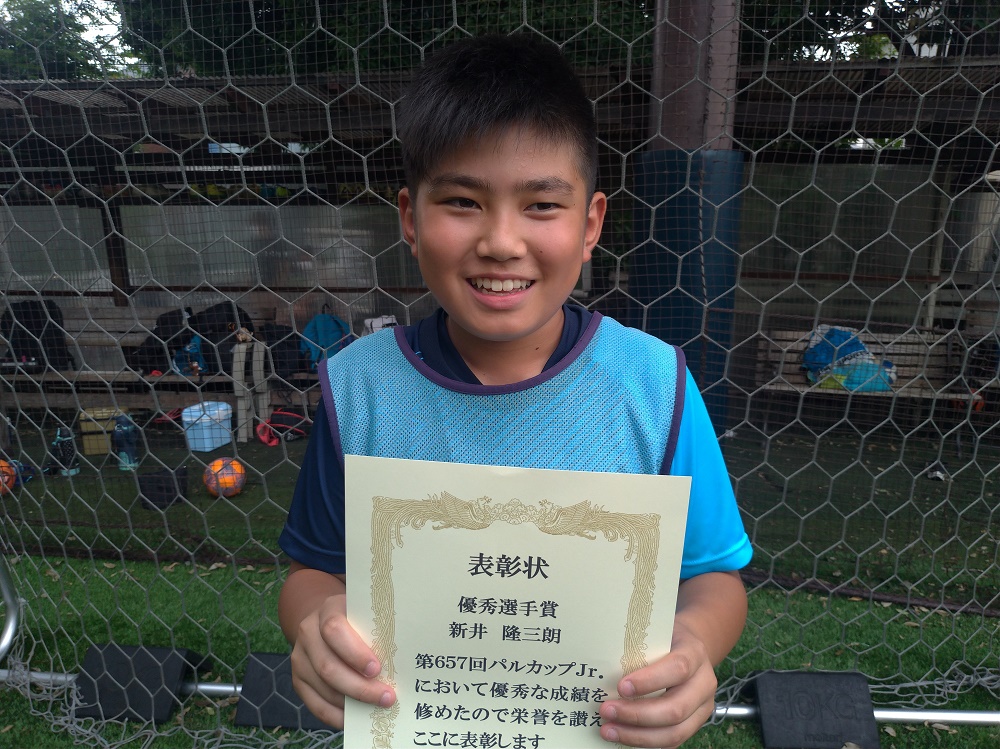 表彰状
優秀選手賞
新井 隆三朗
第657回パルカップJr.
において優秀な成績を
修めたので栄誉を讃え
ここに表彰します